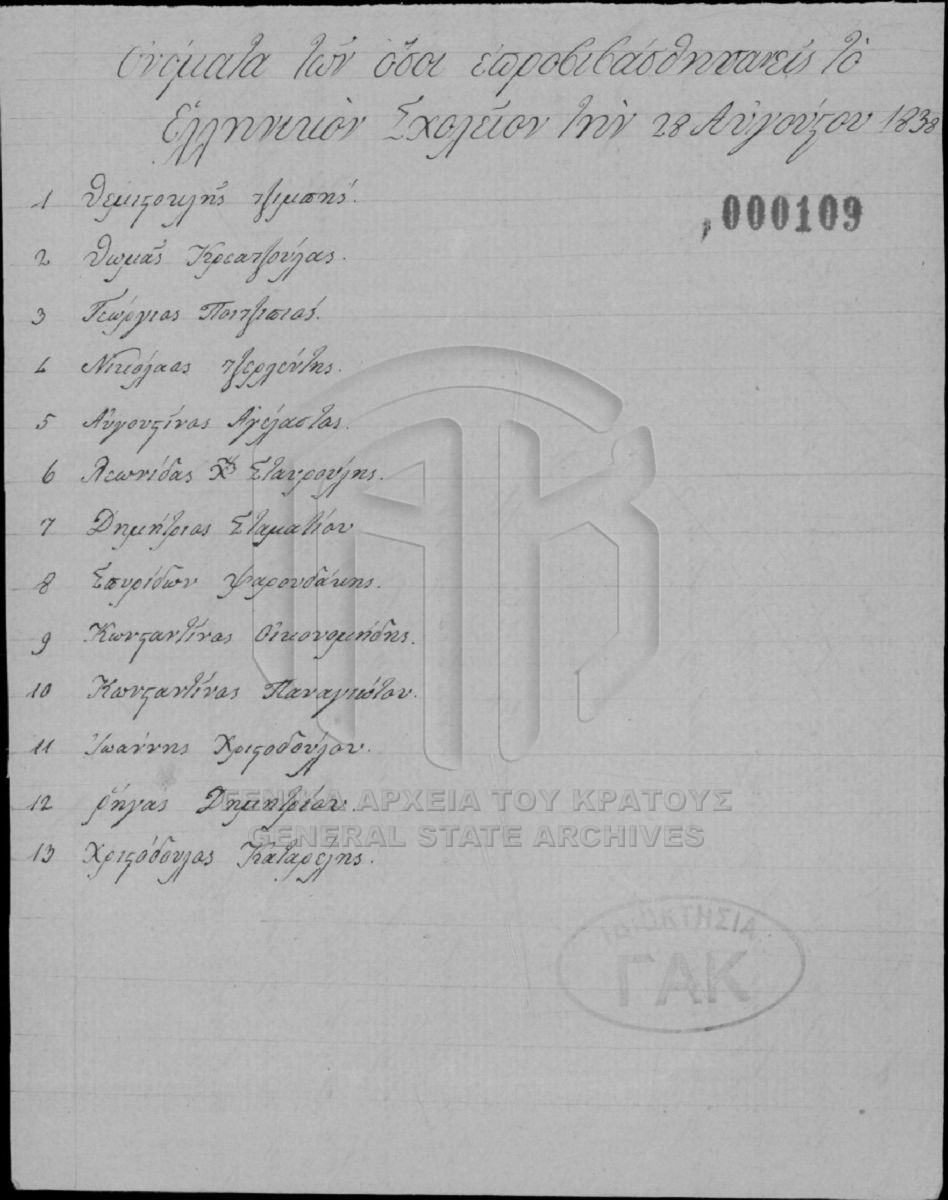 Ὀνόματα τῶν ὅσοι ἐπροβιβάσθησαν εἰς τὸ
Ἑλληνικὸν Σχολεῖον τὴν 28 Αὐγούστου 1838
,000109
1 Θεμιστοκλῆς τζιμπής.
2 Θωμᾶς Κρεατζούλας.
3 Γεώργιος
4 Νικόλαος τζερλέντης.
5 Αὐγουστίνος Ἀγέλαστος.
6 Λεωνίδας Χʺ Σταυρούλης.
7 Δημήτριος Σταματίου
8 Σπυρίδων Ψαρουδάκης.
9 Κωνσταντίνος Οἰκονομήδης.
10 Κωνσταντίνος Παναγιώτου.
11 Ἰωάννης Χριστοδούλου.
12 ῥήγας Δημητρίου.
13 Χριστόδουλος Καταρέλης.
ΓΕΝΙΚΑ ΑΡΧΕΙΑ ΤΟΥ ΚΡΑΤΟΥΣ
GENERAL STATE ARCHIVES
ΙΔΙΟΚΤΗΣΙΑ
ΓΑΚ